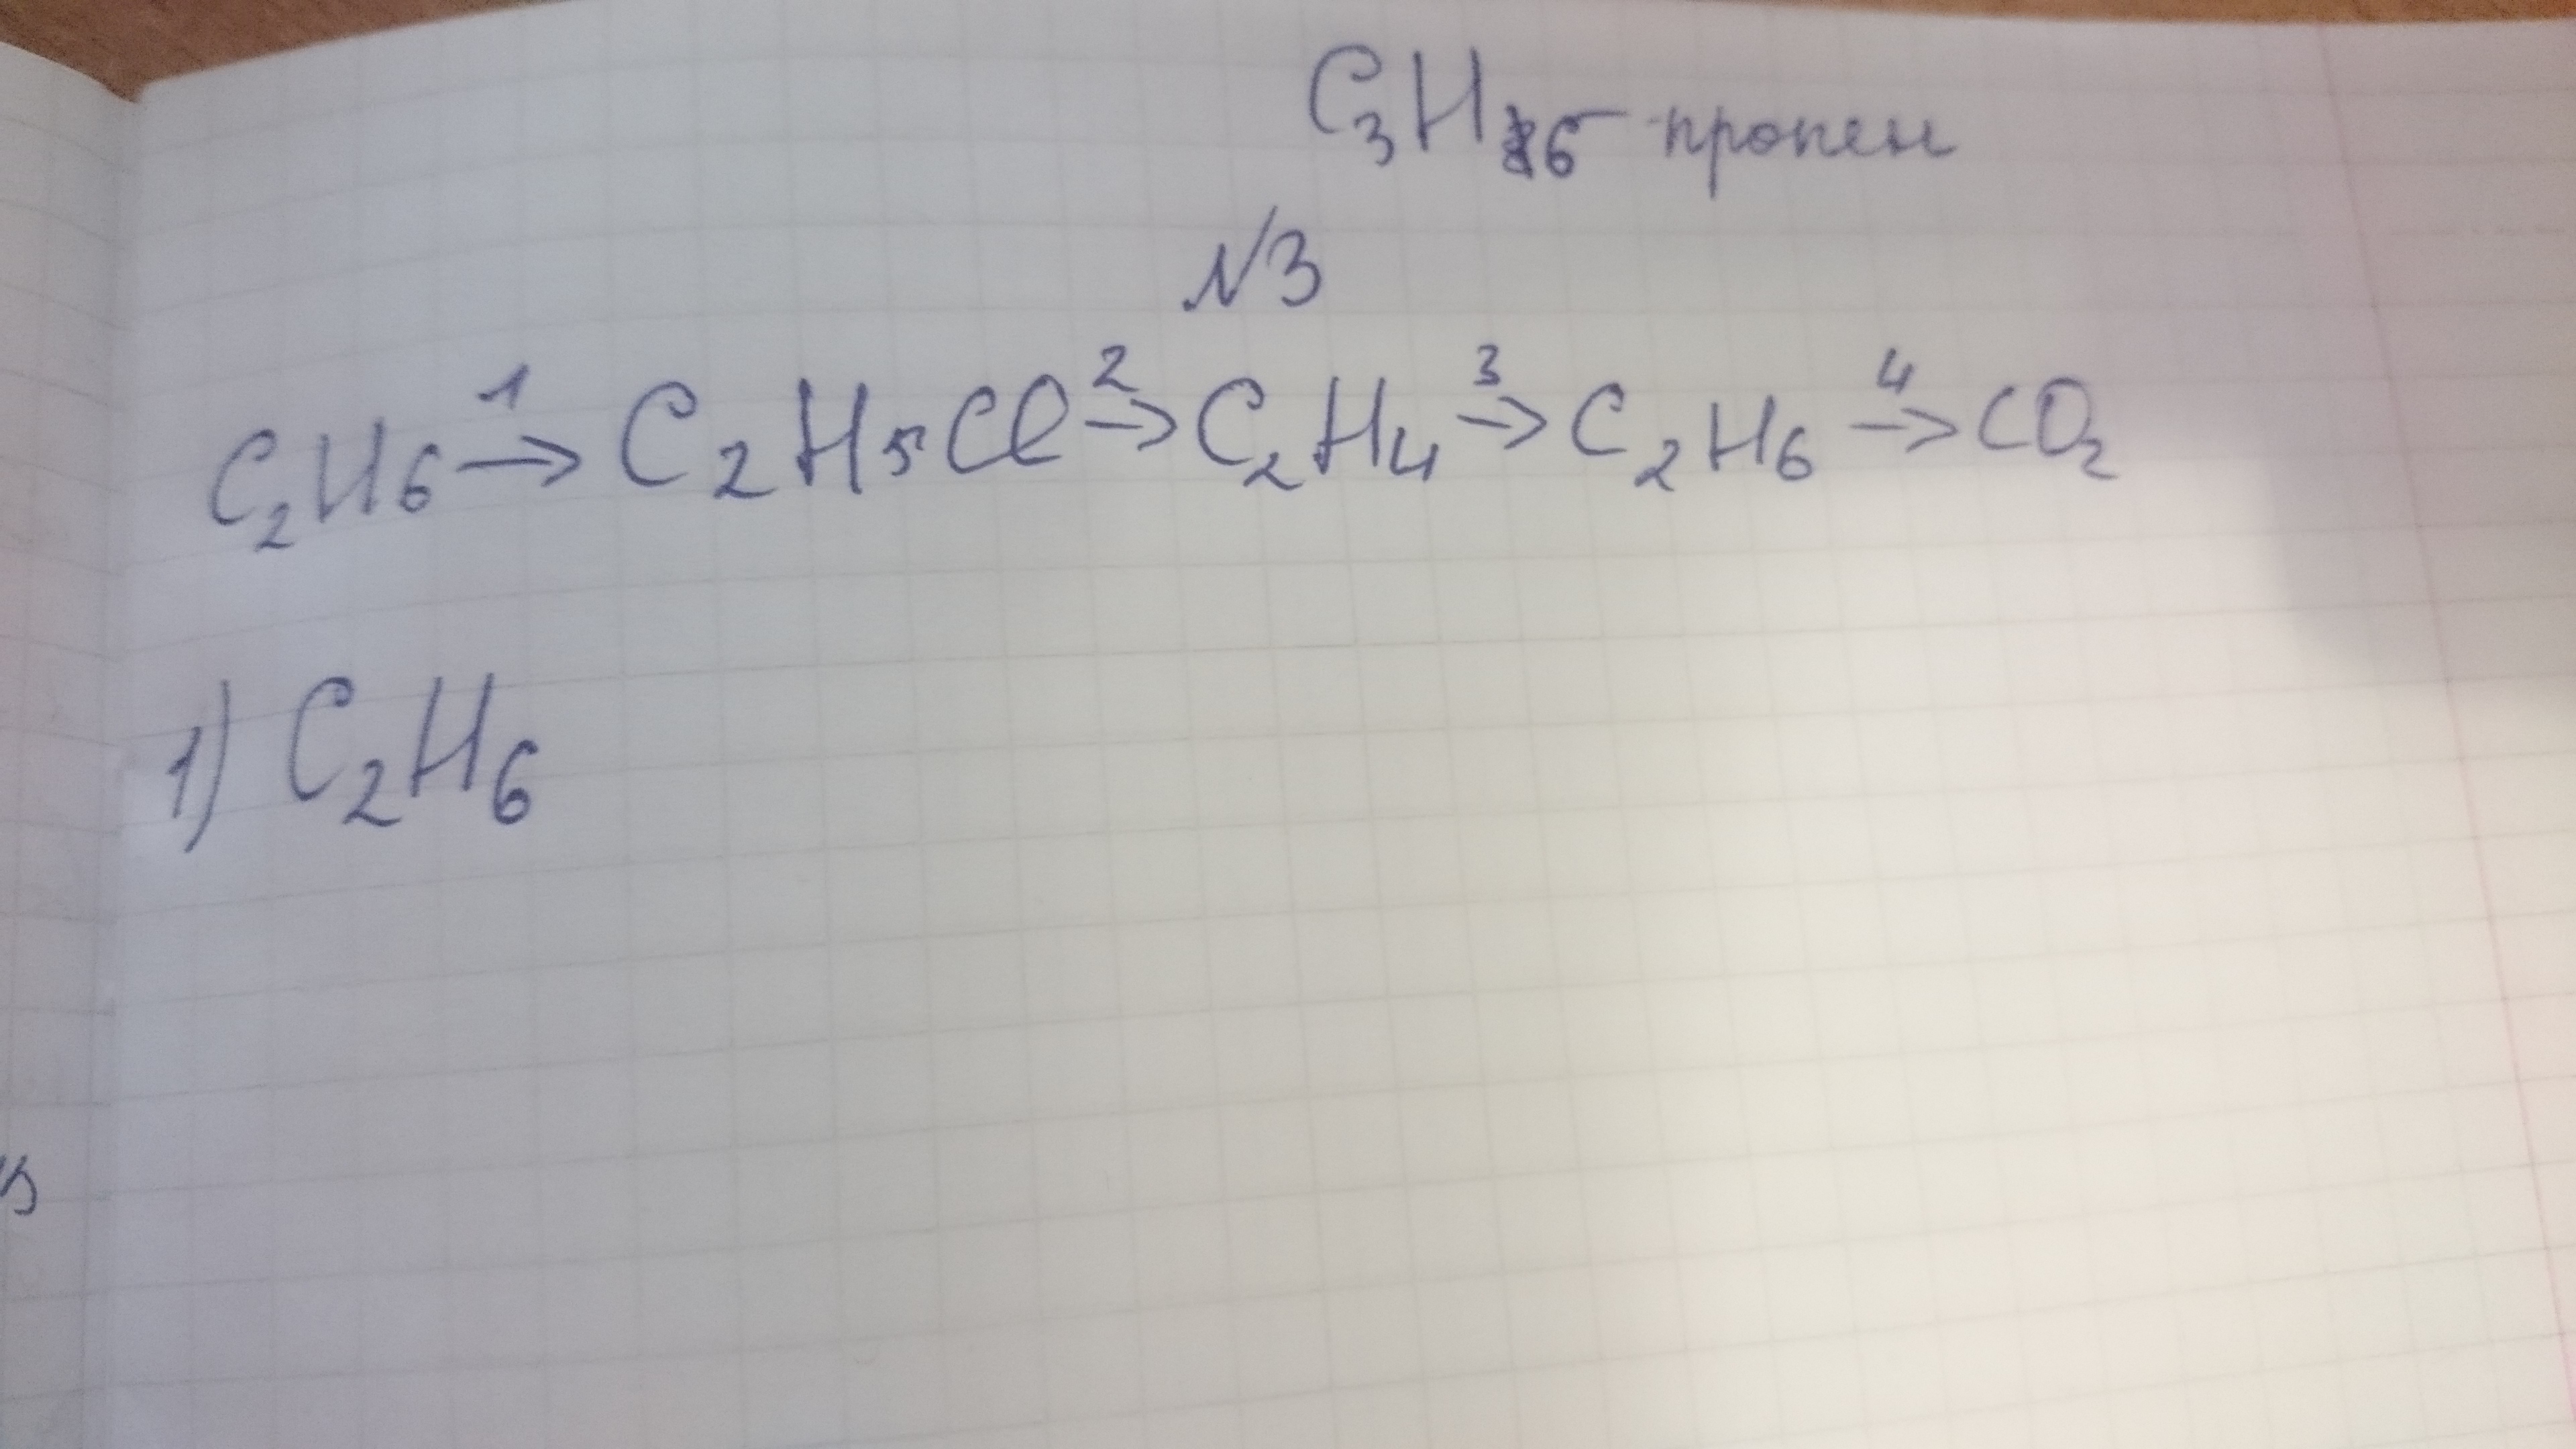 C₃H₆ - пропен
№3
C₂H₆ →¹ C₂H₅Cl →² C₂H₄ →³ C₂H₆ →⁴ CO₂
1) C₂H₆